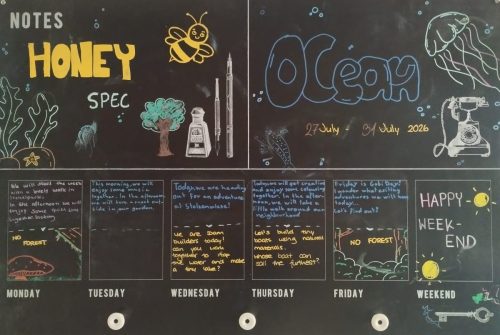 NOTES
HONEY
SPEC
Ocean
27 July - 31 July 2026
We will start the week
with a
In the afternoon we will
enjoy some
together
NO FOREST
This morning, we will
enjoy some music
together. In the afternoon,
we will have a
side in your garden.
Today, we are heading
out for an adventure
at
We are Dam
builders today!
can you work
together to stop
the water and make
a tiny lake?
Today, we will get creative
and enjoy some colouring
together. In the after-
noon, we will take a
little walk around our
neighbourhood
Let's build tiny
boats using natural
materials
whose boat can
sail the furthest?
Friday is Gobi Days!
I wonder what exciting
adventures we will have
today...
Let's find out?
NO FOREST
HAPPY
WEEK-
END
MONDAY
TUESDAY
WEDNESDAY
THURSDAY
FRIDAY
WEEKEND